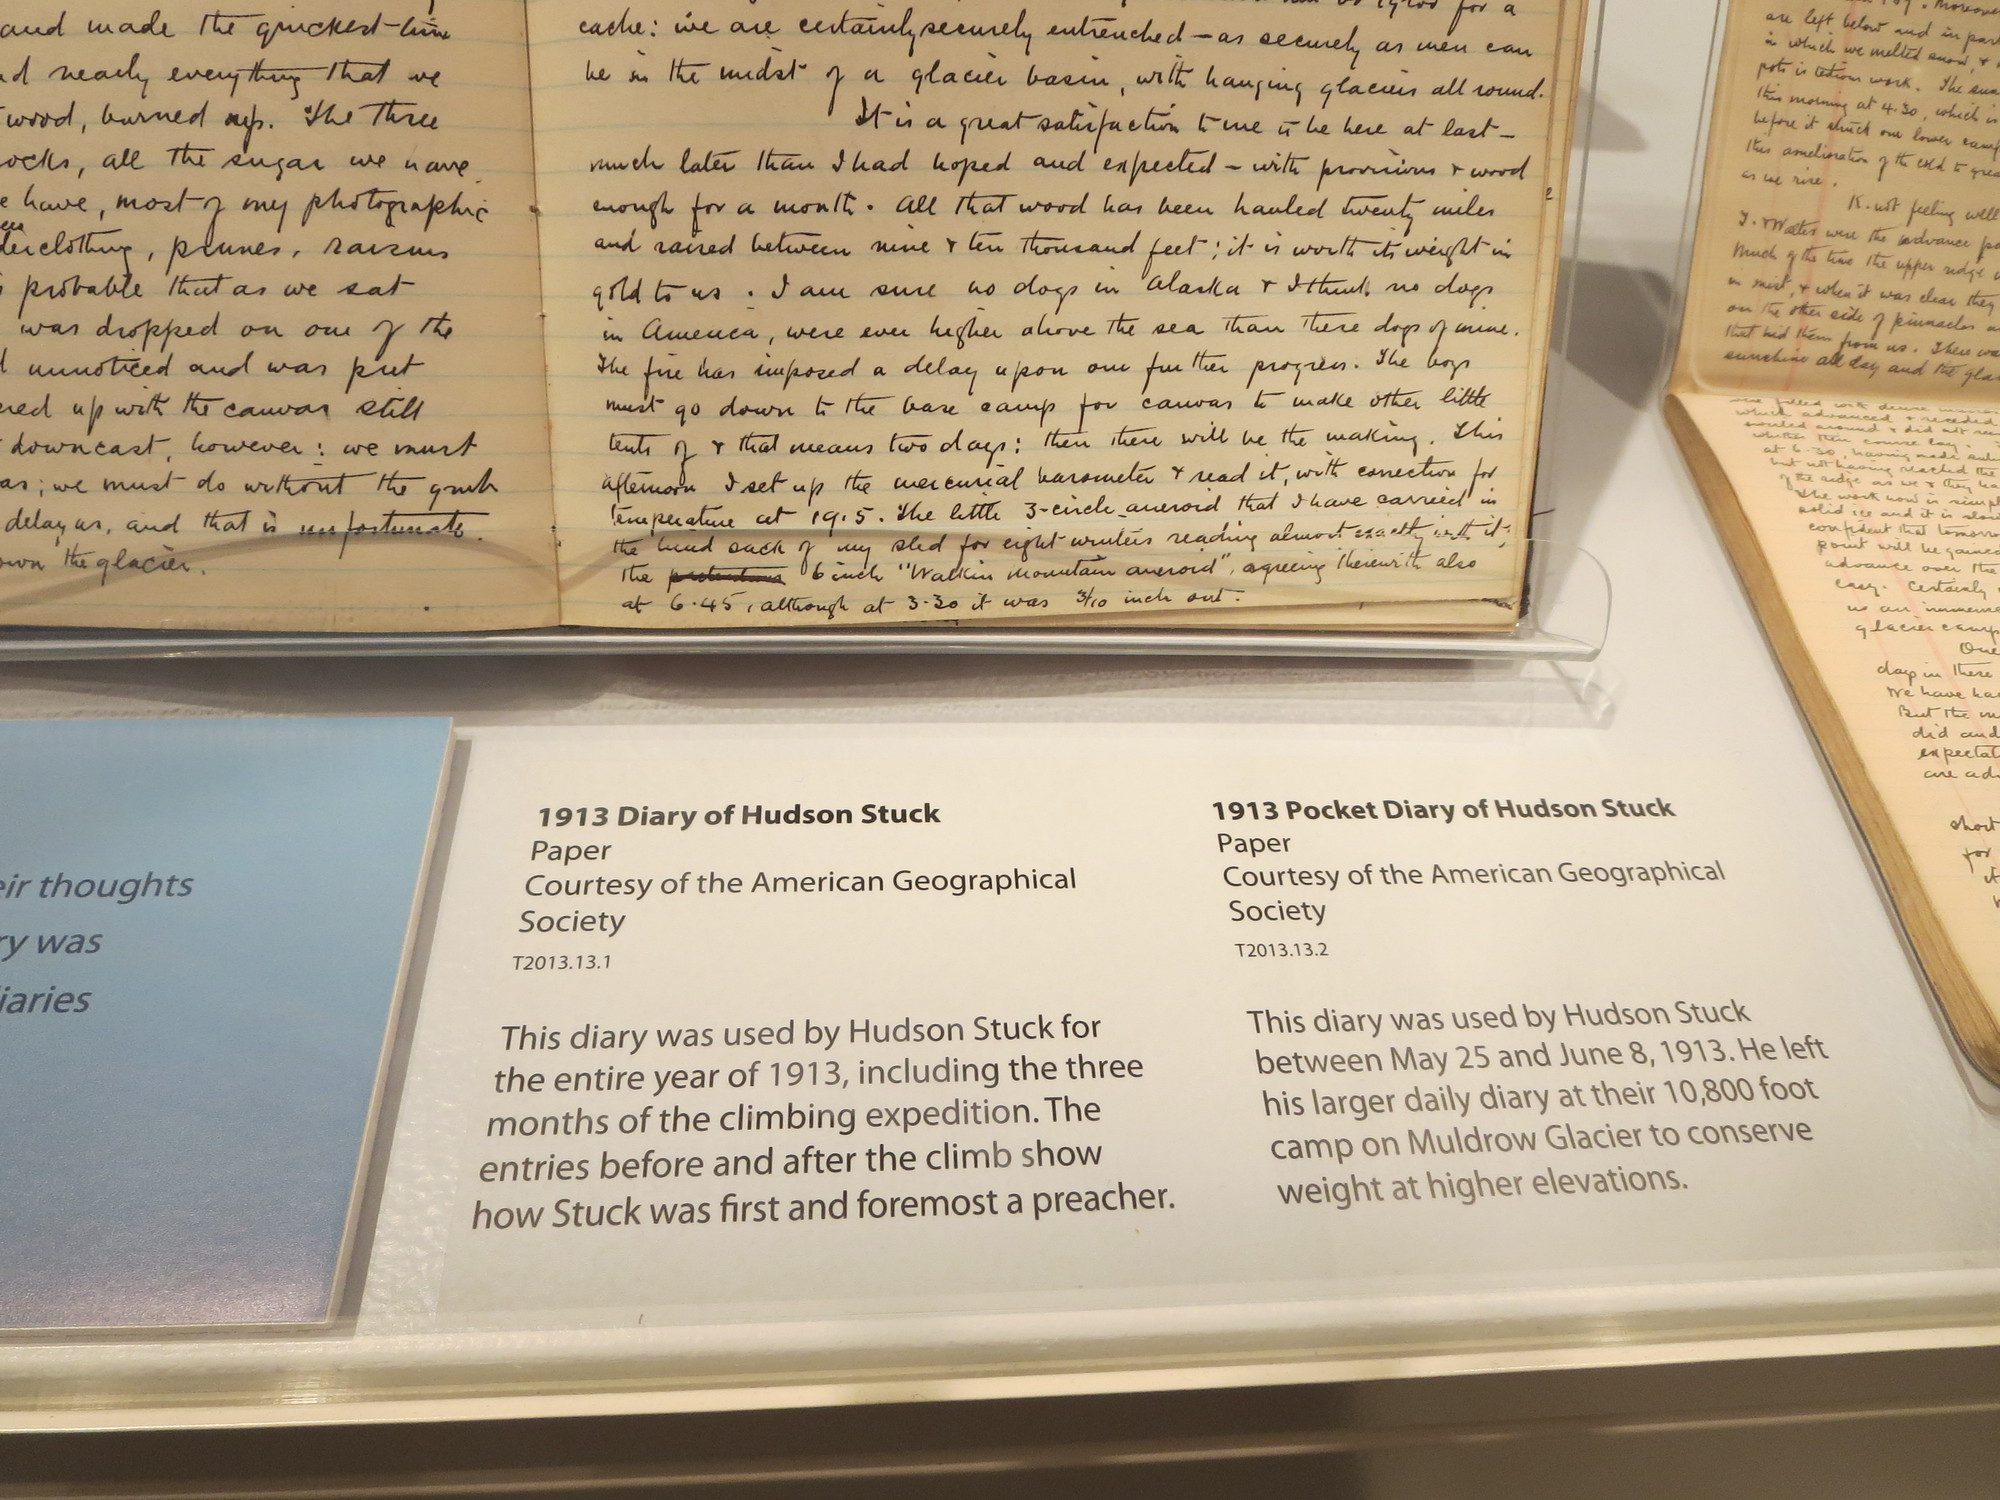 and made the quickest time
nearly everything that we
wood, burned up. The three
all the sugar we have
have, most of my photographic
prunes, raisins
probable that as we sat
was dropped on one of the
unnoticed and was put
up with the canvas still
downcast, however: we must
as; we must do without the grub
delay us, and that is unfortunate.
the glacier.
for a
cache: we are certainly securely entrenched – as securely as men can
be in the midst of a glacier basin, with hanging glaciers all round.
It is a great satisfaction to me to be here at last –
much later than I had hoped and expected – with provisions & wood
enough for a month. All that wood has been hauled twenty miles
and raised between nine & ten thousand feet; it is worth its weight in
gold to us. I am sure no dogs in Alaska & I think no dogs
in America, were ever higher above the sea than these dogs of mine.
The fire has imposed a delay upon our further progress. The boys
must go down to the base camp for canvas to make other little
tents of & that means two days: then there will be the making. This
afternoon I set up the mercurial barometer & read it, with correction for
temperature at 19.5. The little 3-circle aneroid that I have carried in
the hind sack of my sled for eight winters reading almost exactly with it;
the 6 inch "Watkin mountain aneroid", agreeing therewith also
at 6.45, although at 3.30 it was 3/10 inch out.
Moreover
are left below and in
in which we melted snow, &
pots is tedious work. The
this morning at 4.30, which is
before it struck our lower camp
this amelioration of the cold
as we rise.
K. not feeling well
& Walter were the advance
Much of the time the upper ridge
in mist, & when it was clear they
on the other side of pinnacles
that hid them from us. There was
sunshine all day and the
which advanced & receded
at 6.30, having made
but not having reached the
of the ridge as we & they
The work now is
solid ice and it is
confident that
point will be gained
advance over the
easy. Certainly
us an immense
glacier camp
One
days in these
We have had
But the
did and
expectat
are
short
for
eir thoughts
ry was
iaries
1913 Diary of Hudson Stuck
Paper
Courtesy of the American Geographical
Society
T2013.13.1
This diary was used by Hudson Stuck for
the entire year of 1913, including the three
months of the climbing expedition. The
entries before and after the climb show
how Stuck was first and foremost a preacher.
1913 Pocket Diary of Hudson Stuck
Paper
Courtesy of the American Geographical
Society
T2013.13.2
This diary was used by Hudson Stuck
between May 25 and June 8, 1913. He left
his larger daily diary at their 10,800 foot
camp on Muldrow Glacier to conserve
weight at higher elevations.